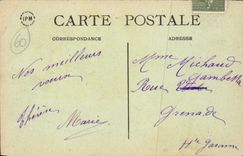 IPM
60
CARTE POSTALE
CORRESPONDANCE
ADRESSE
Nos meilleurs
vœux
Thérèse
Marie
Mme Michaud
Rue Gambetta
Grenade
Hte Garonne